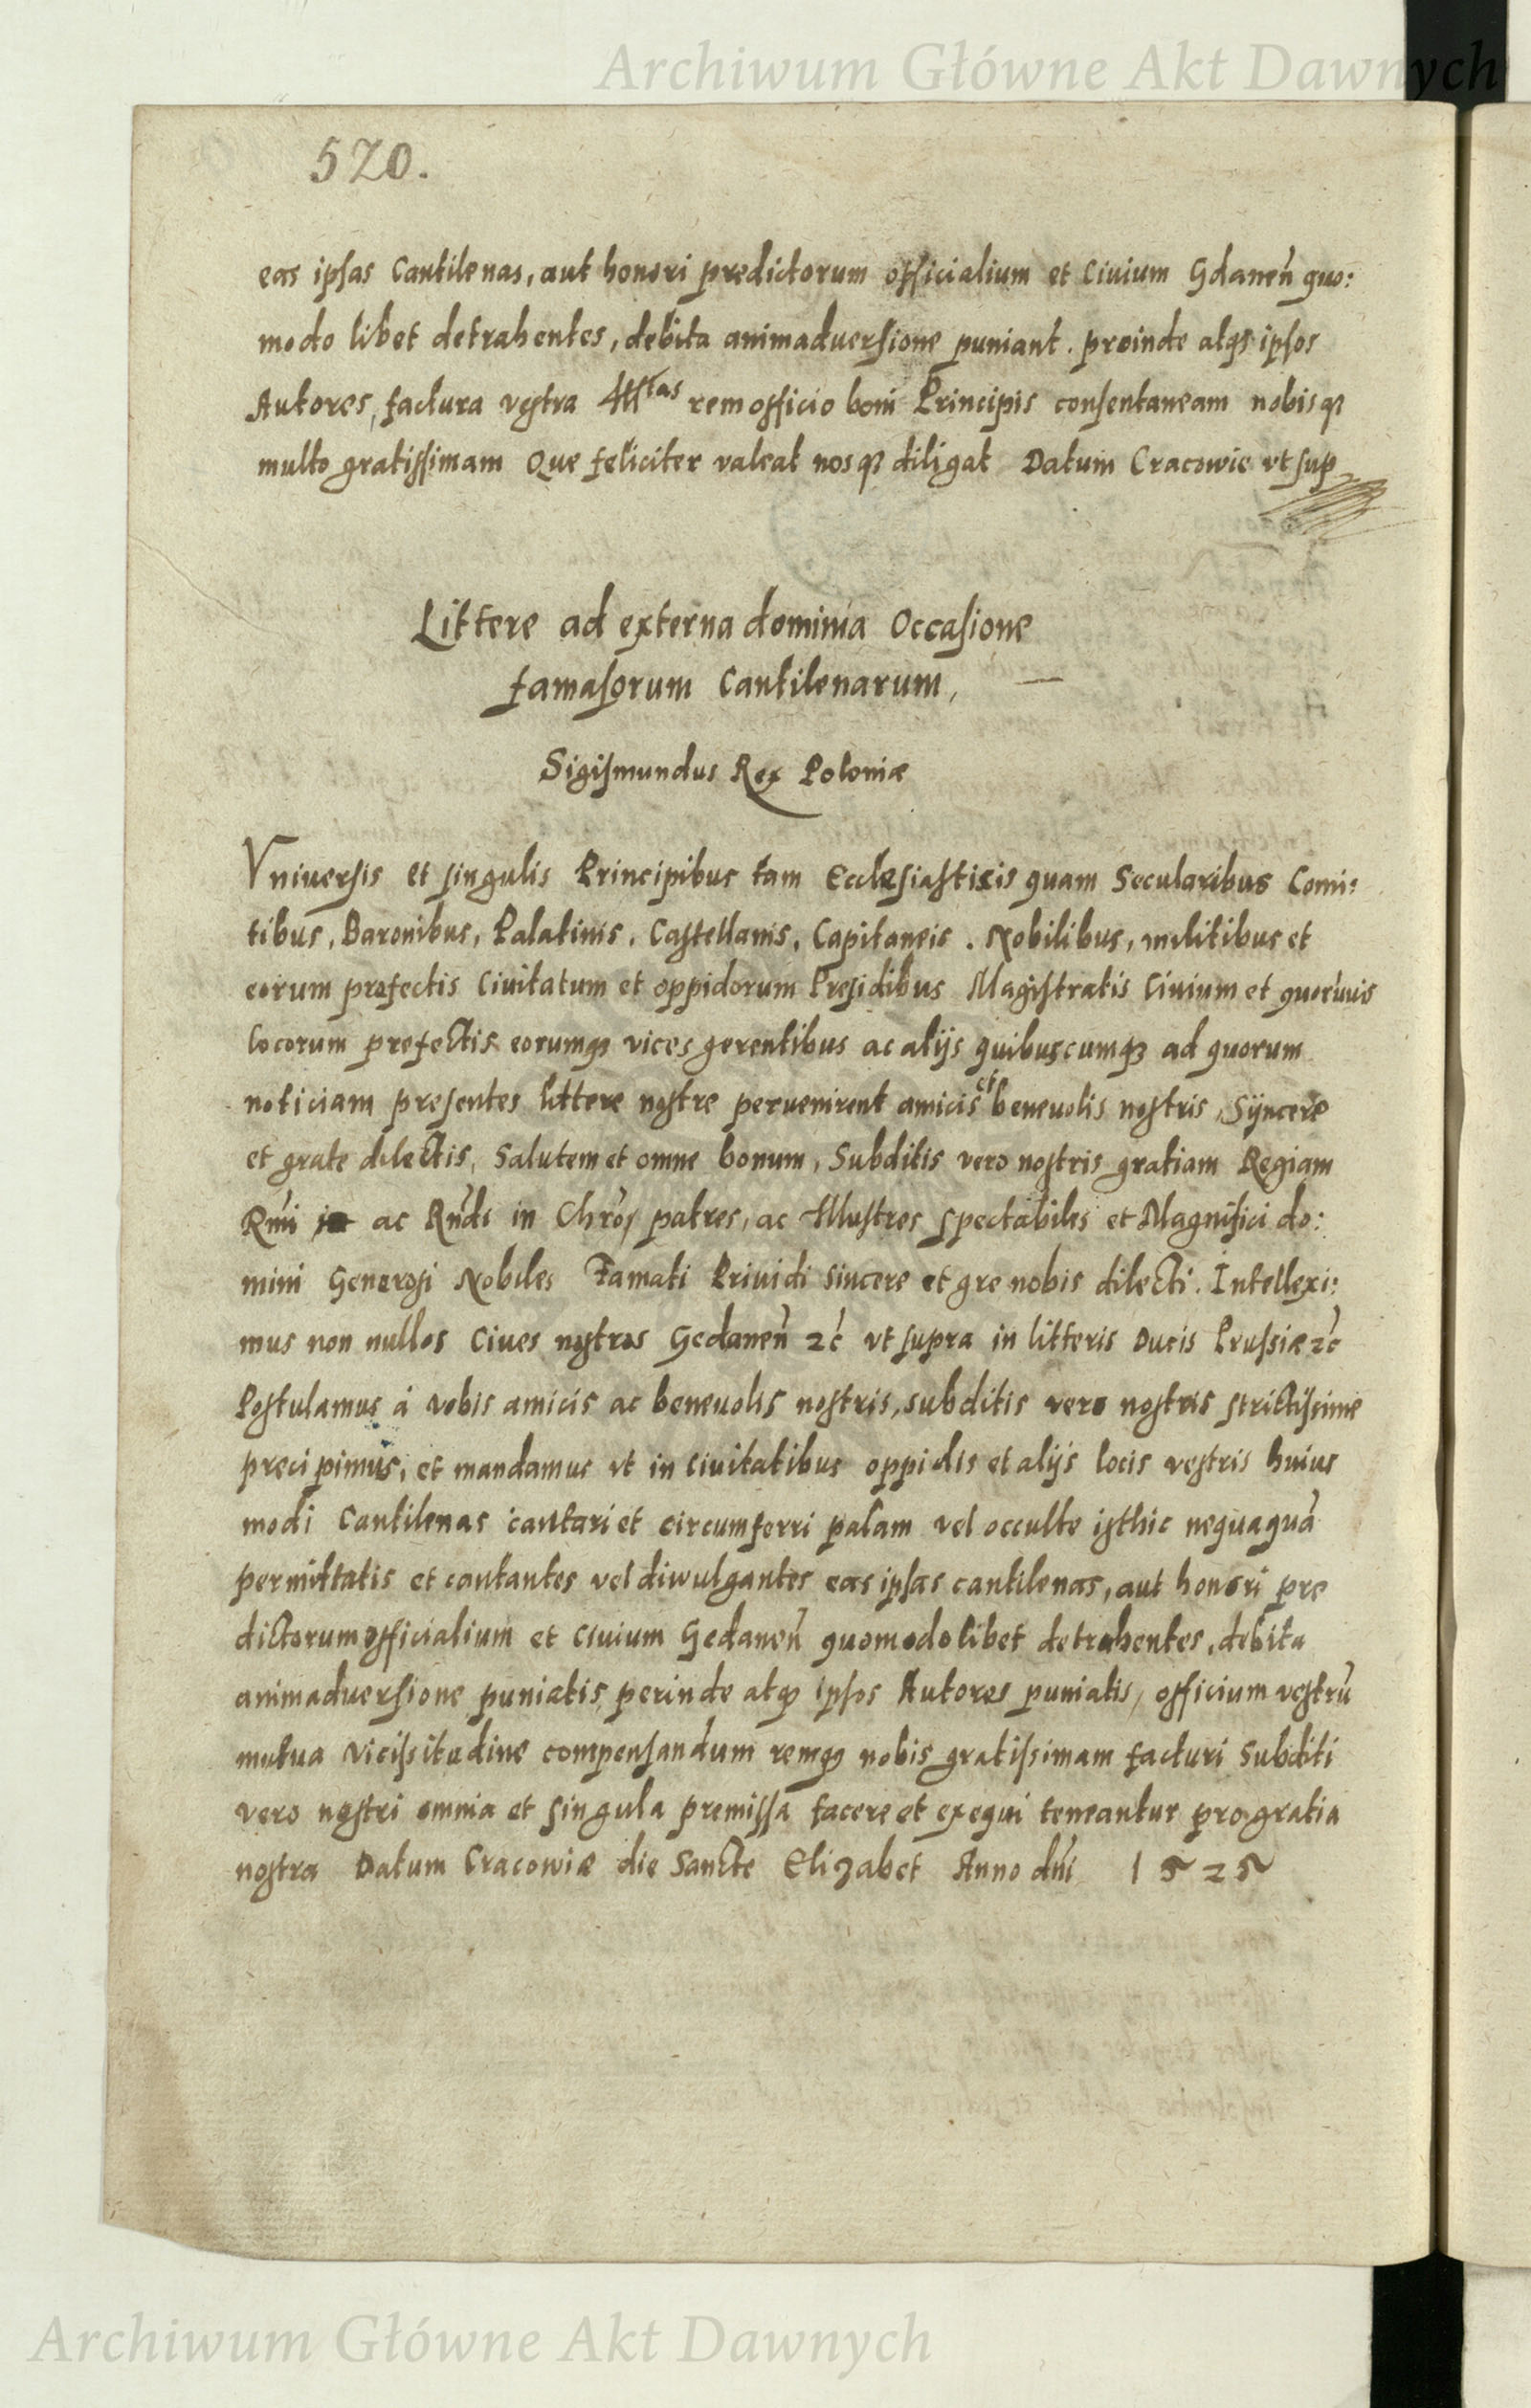 Archiwum Główne Akt Dawnych
520.
eas ipsas Cantilenas, aut honori predictorum officialium et Civium Gdaneñ quo:
modo libet detrahentes, debita animaduersione puniant. proinde atqз ipsos
Autores, factura vestra Illtas rem officio boni Principis consentaneam nobisqз
multo gratissimam Que feliciter valeat nosqз diligat Datum Cracowie vt sup
Littere ad externa dominia Occasione
famasorum Cantilenarum,
Sigismundus Rex Poloniæ
Vniuersis et singulis Principibus tam Ecclesiasticis quam Secularibus Comi:
tibus, Baronibus, Palatinis, Castellanis, Capitaneis. Nobilibus, militibus et
eorum prefectis Ciuitatum et oppidorum Presidibus Magistratis Ciuium et quorũuis
locorum prefectis eorumqз vices gerentibus ac alijs quibuscumqз ad quorum
noticiam presentes littere nostre peruenirent amicis et beneuolis nostris, Syncere
et grate dilectis, Salutem et omne bonum, Subditis vero nostris gratiam Regiam
Rm̃i ac Rñdi in Chrõ patres, ac Illustres Spectabiles et Magnifici do:
mini Generosi Nobiles Famati Prouidi sincere et gre nobis dilecti. Intellexi:
mus non nullos Ciues nostros Gedaneñ 2c̃ vt supra in litteris Ducis Prussiæ 2c̃
Postulamus á vobis amicis ac beneuolis nostris, subditis vero nostris strictissime
precipimus, et mandamus vt in Ciuitatibus oppidis et alijs locis vestris huius
modi Cantilenas cantari et circumferri palam vel occulte isthic nequaquã
permittatis et cantantes vel diwulgantes eas ipsas cantilenas, aut honori pre
dictorum officialium et Ciuium Gedaneñ quomodolibet detrahentes, debita
animaduersione puniatis, perinde atqз ipsos Autores puniatis, officium vestrũ
mutua vicissitudine compensandum remqз nobis gratissimam facturi Subditi
vero nostri omnia et singula premissa facere et exequi teneantur pro gratia
nostra Datum Cracowiæ die Sancte Elizabet Anno dñi 1525
Archiwum Główne Akt Dawnych